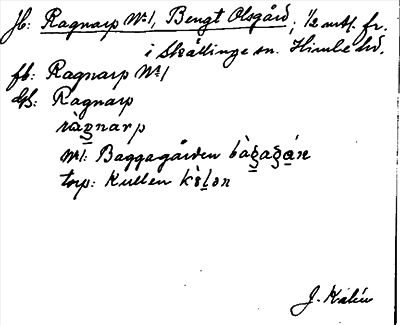 Jb: Ragnarp Nr 1, Bengt Olsgård, 1/2 mtl. fr.
i Skällinge sn. Himle hd.
fb: Ragnarp Nr 1
Gh: Ragnarp
ràgnarp
Nr 1: Baggagården bàgagán
torp: Kullen kèlən
J. Kalén